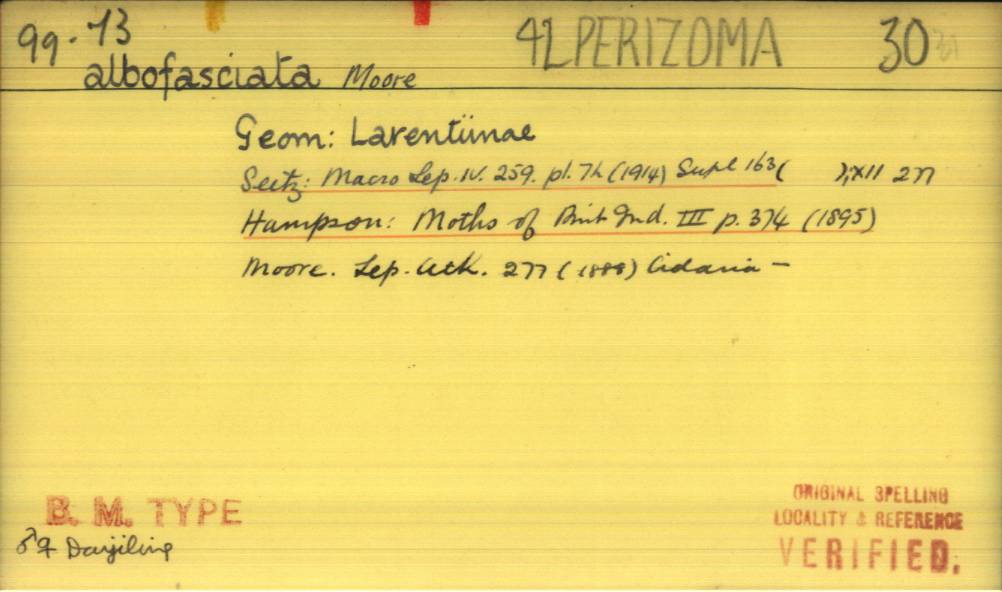 99-73 42 PERIZOMA 30 31
albofasciata Moore
Geom: Larentiinae
Seitz: Macro Lep. IV. 259. pl. 7h (1914) Supl 163( );XII 277
Hampson: Moths of Brit Ind. III p. 374 (1895)
Moore. Lep. Atk. 277 (1888) Cidaria —
B. M. TYPE
♂♀ Darjiling
ORIGINAL SPELLING
LOCALITY & REFERENCE
VERIFIED.